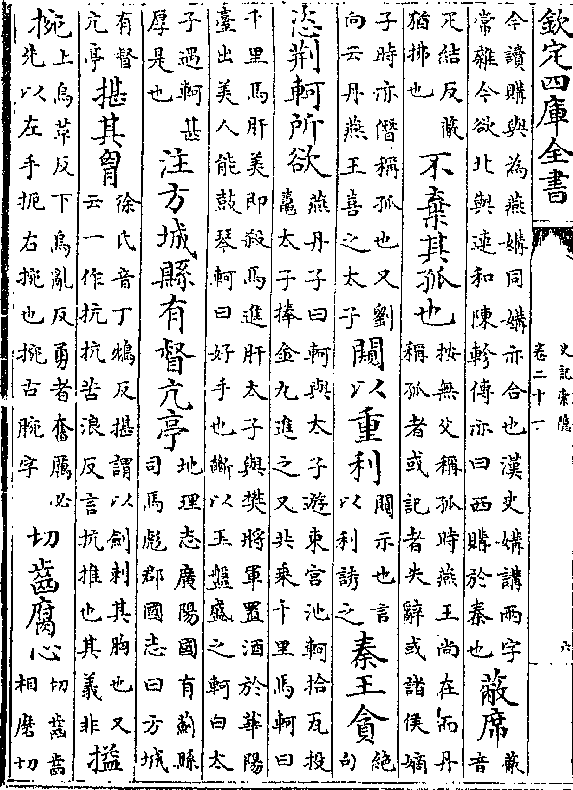 欽定四庫全書
史記索隱
卷二十一
六
今讀購與為燕媾同媾亦合也漢史媾講兩字
常雜今欲北與連和陳軫傳亦曰西購於秦也
蔽席
蔽
音
疋結反蔽
猶拂也
不棄其孤也
按無父稱孤時燕王尚在而丹
稱孤者或記者失辭或諸侯嫡
子時亦僭稱孤也又劉
向云丹燕王喜之太子
闚以重利
闚示也言
以利誘之
秦王貪
絶
句
恣荆軻所欲
燕丹子曰軻與太子游東宮池軻拾瓦投
鼃太子捧金丸進之又共乘千里馬軻曰
千里馬肝美即殺馬進肝太子與樊將軍置酒於華陽
臺出美人能鼓琴軻曰好手也斷以玉盤盛之軻曰太
子遇軻甚
厚是也
注方城縣有督亢亭
地理志廣陽國有薊縣
司馬彪郡國志曰方城
有督
亢亭
揕其胷
徐氏音丁鴆反揕謂以劍刺其胸也又
云一作抗抗苦浪反言抗推也其義非
搤
捥
上烏革反下烏亂反勇者奮厲必
先以左手扼右捥也捥古腕字
切齒腐心
切齒齒
相磨切